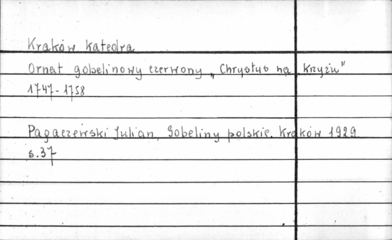 Kraków katedra
Ornat gobelinowy czerwony „Chrystus na krzyżu"
1747-1758
Pagaczewski Julian, Gobeliny polskie. Kraków 1929
s.37